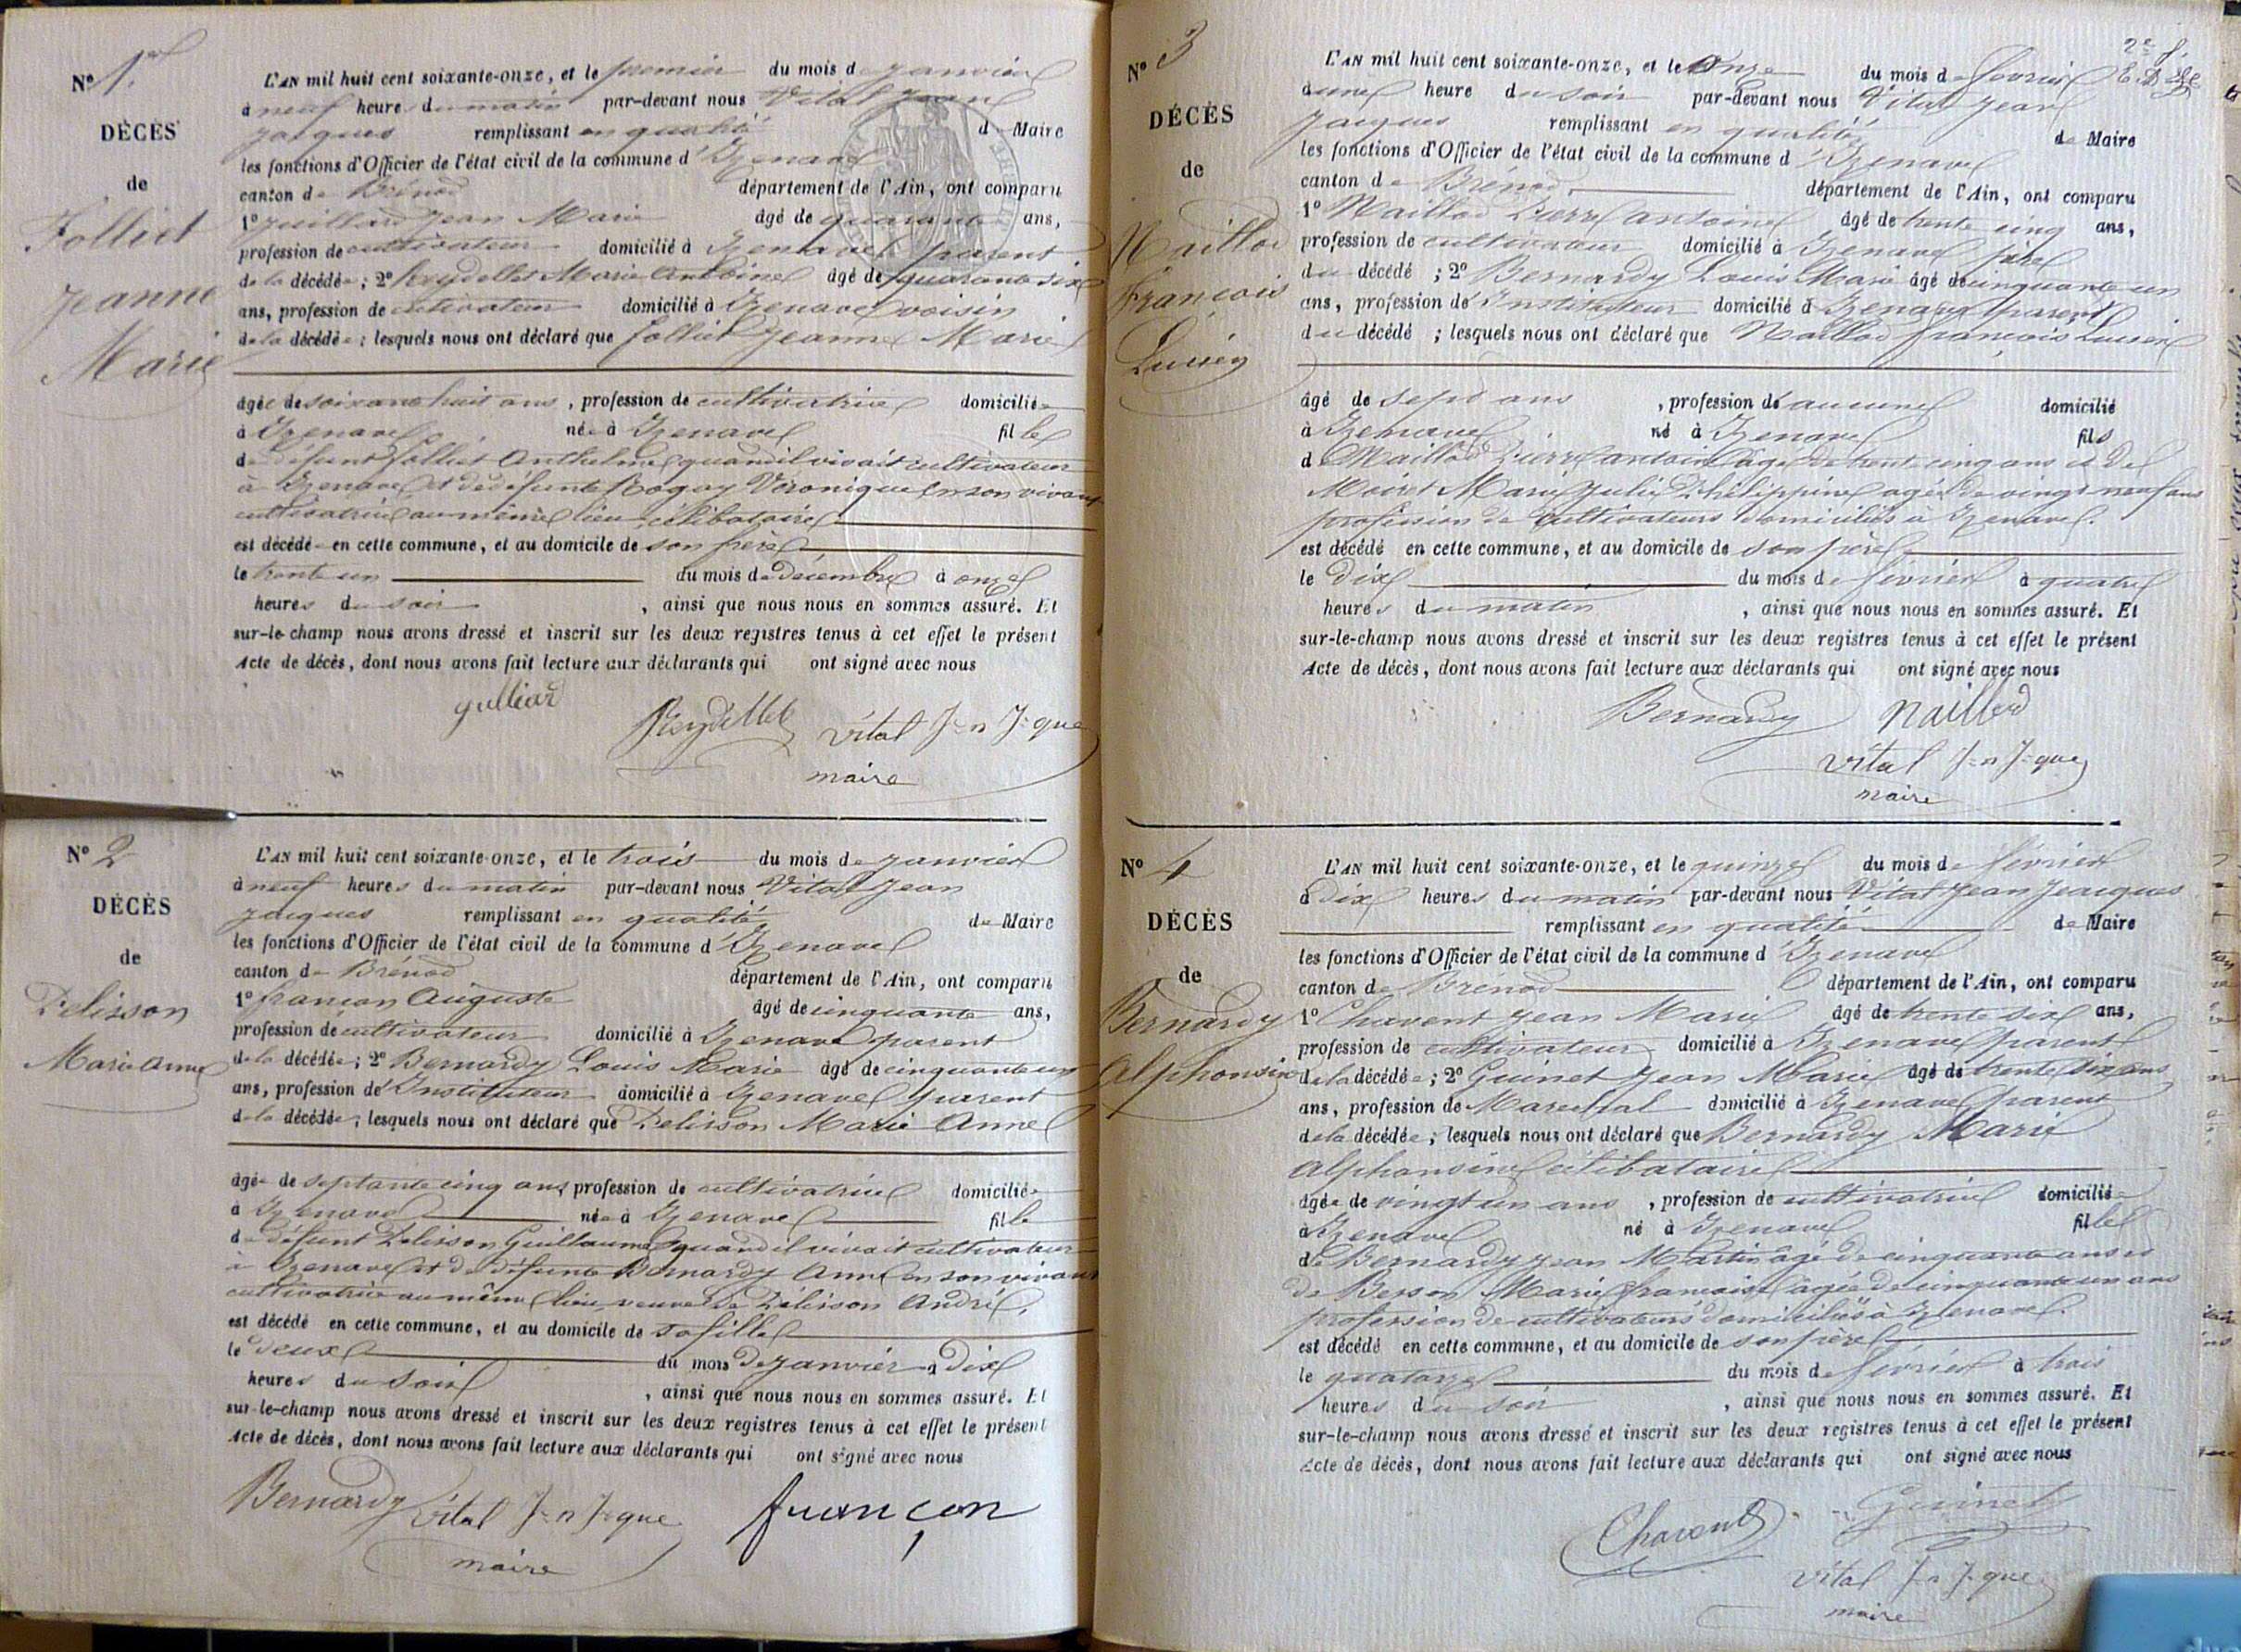 N° 1er
DÉCÈS
de
Jolliet
Jeanne
Marie
L'AN mil huit cent soixante-onze, et le premier du mois de janvier
à neuf heure du matin par-devant nous Vital Jean
Jacques remplissant en qualité de Maire
les fonctions d'Officier de l'état civil de la commune d'Izenave
canton de Brénod département de l'Ain, ont comparu
1° Juillard Jean Marie âgé de quarante ans,
profession de cultivateur domicilié à Izenave parent
de la décédée; 2° Reydellet Marie Antoine âgé de quarante six
ans, profession de cultivateur domicilié à Izenave voisin
de la décédée; lesquels nous ont déclaré que Jolliet Jeanne Marie
âgée de soixante huit ans, profession de cultivatrice domiciliée
à Izenave née à Izenave fille
de défunt Jolliet Anthelme quand il vivait cultivateur
à Izenave et de défunte Rogay Véronique en son vivant
cultivatrice au même lieu, célibataire
est décédé en cette commune, et au domicile de son frère
le trente un du mois de décembre à onze
heures du soir, ainsi que nous nous en sommes assuré. Et
sur-le-champ nous avons dressé et inscrit sur les deux registres tenus à cet effet le présent
Acte de décès, dont nous avons fait lecture aux déclarants qui ont signé avec nous
Reydellet Vital J=n J=que
maire
N° 2
DÉCÈS
de
Delisson
Marie Anne
L'AN mil huit cent soixante-onze, et le trois du mois de janvier
à neuf heures du matin par-devant nous Vital Jean
Jacques remplissant en qualité de Maire
les fonctions d'Officier de l'état civil de la commune d'Izenave
canton de Brénod département de l'Ain, ont comparu
1° françon Auguste âgé de cinquante ans,
profession de cultivateur domicilié à Izenave parent
de la décédée; 2° Bernardy Louis Marie âgé de cinquante un
ans, profession de Instituteur domicilié à Izenave parent
de la décédée; lesquels nous ont déclaré que Delisson Marie Anne
âgée de septante cinq ans, profession de cultivatrice domiciliée
à Izenave née à Izenave fille
de défunt Delisson Guillaume quand il vivait cultivateur
à Izenave et de défunte Bernardy Anne en son vivant
cultivatrice au même lieu, veuve de Délisson André,
est décédé en cette commune, et au domicile de sa fille
le deux du mois de janvier à dix
heures du soir, ainsi que nous nous en sommes assuré. Et
sur-le-champ nous avons dressé et inscrit sur les deux registres tenus à cet effet le présent
Acte de décès, dont nous avons fait lecture aux déclarants qui ont signé avec nous
Bernardy Vital J=n J=que françon
maire
N° 3
DÉCÈS
de
Maillod
François
Lucien
2e f.
L'AN mil huit cent soixante-onze, et le Onze du mois de février
à une heure du soir par-devant nous Vital Jean
Jacques remplissant en qualité de Maire
les fonctions d'Officier de l'état civil de la commune d'Izenave
canton de Brénod, département de l'Ain, ont comparu
1° Maillod Pierre antoine âgé de trente cinq ans,
profession de cultivateur domicilié à Izenave père
du décédé; 2° Bernardy Louis Marie âgé de cinquante un
ans, profession de Instituteur domicilié à Izenave parent
du décédé; lesquels nous ont déclaré que Maillod françois Lucien
âgé de sept ans, profession de aucune domicilié
à Izenave né à Izenave fils
de Maillod Pierre antoine âgé de trente cinq ans et de
Moiret Marie Julie Philippine agée de vingt neuf ans
profession de Cultivateurs domiciliés à Izenave.
est décédé en cette commune, et au domicile de son père
le dix du mois de février à quatre
heures du matin, ainsi que nous nous en sommes assuré. Et
sur-le-champ nous avons dressé et inscrit sur les deux registres tenus à cet effet le présent
Acte de décès, dont nous avons fait lecture aux déclarants qui ont signé avec nous
Bernardy Maillod
Vital J=n J=que
maire
N° 4
DÉCÈS
de
Bernardy
Alphonsine
L'AN mil huit cent soixante-onze, et le quinze du mois de février
à dix heures du matin par-devant nous Vital Jean Jacques
remplissant en qualité de Maire
les fonctions d'Officier de l'état civil de la commune d'Izenave
canton de Brénod département de l'Ain, ont comparu
1° Chavent Jean Marie âgé de trente six ans,
profession de cultivateur domicilié à Izenave parent
de la décédée; 2° Guinet Jean Marie âgé de trente six ans
ans, profession de Marechal domicilié à Izenave parent
de la décédée; lesquels nous ont déclaré que Bernardy Marie
Alphonsine célibataire
âgée de vingt un ans, profession de cultivatrice domiciliée
à Izenave né à Izenave fille
de Bernardy Jean Martin âgé de cinquante ans et
de Besson Marie françoise agée de cinquante un ans
profession de cultivateurs domiciliés à Izenave.
est décédé en cette commune, et au domicile de son père
le quatorze du mois de février à trois
heures du soir, ainsi que nous nous en sommes assuré. Et
sur-le-champ nous avons dressé et inscrit sur les deux registres tenus à cet effet le présent
Acte de décès, dont nous avons fait lecture aux déclarants qui ont signé avec nous
Chavent Guinet
Vital J=n J=que
maire